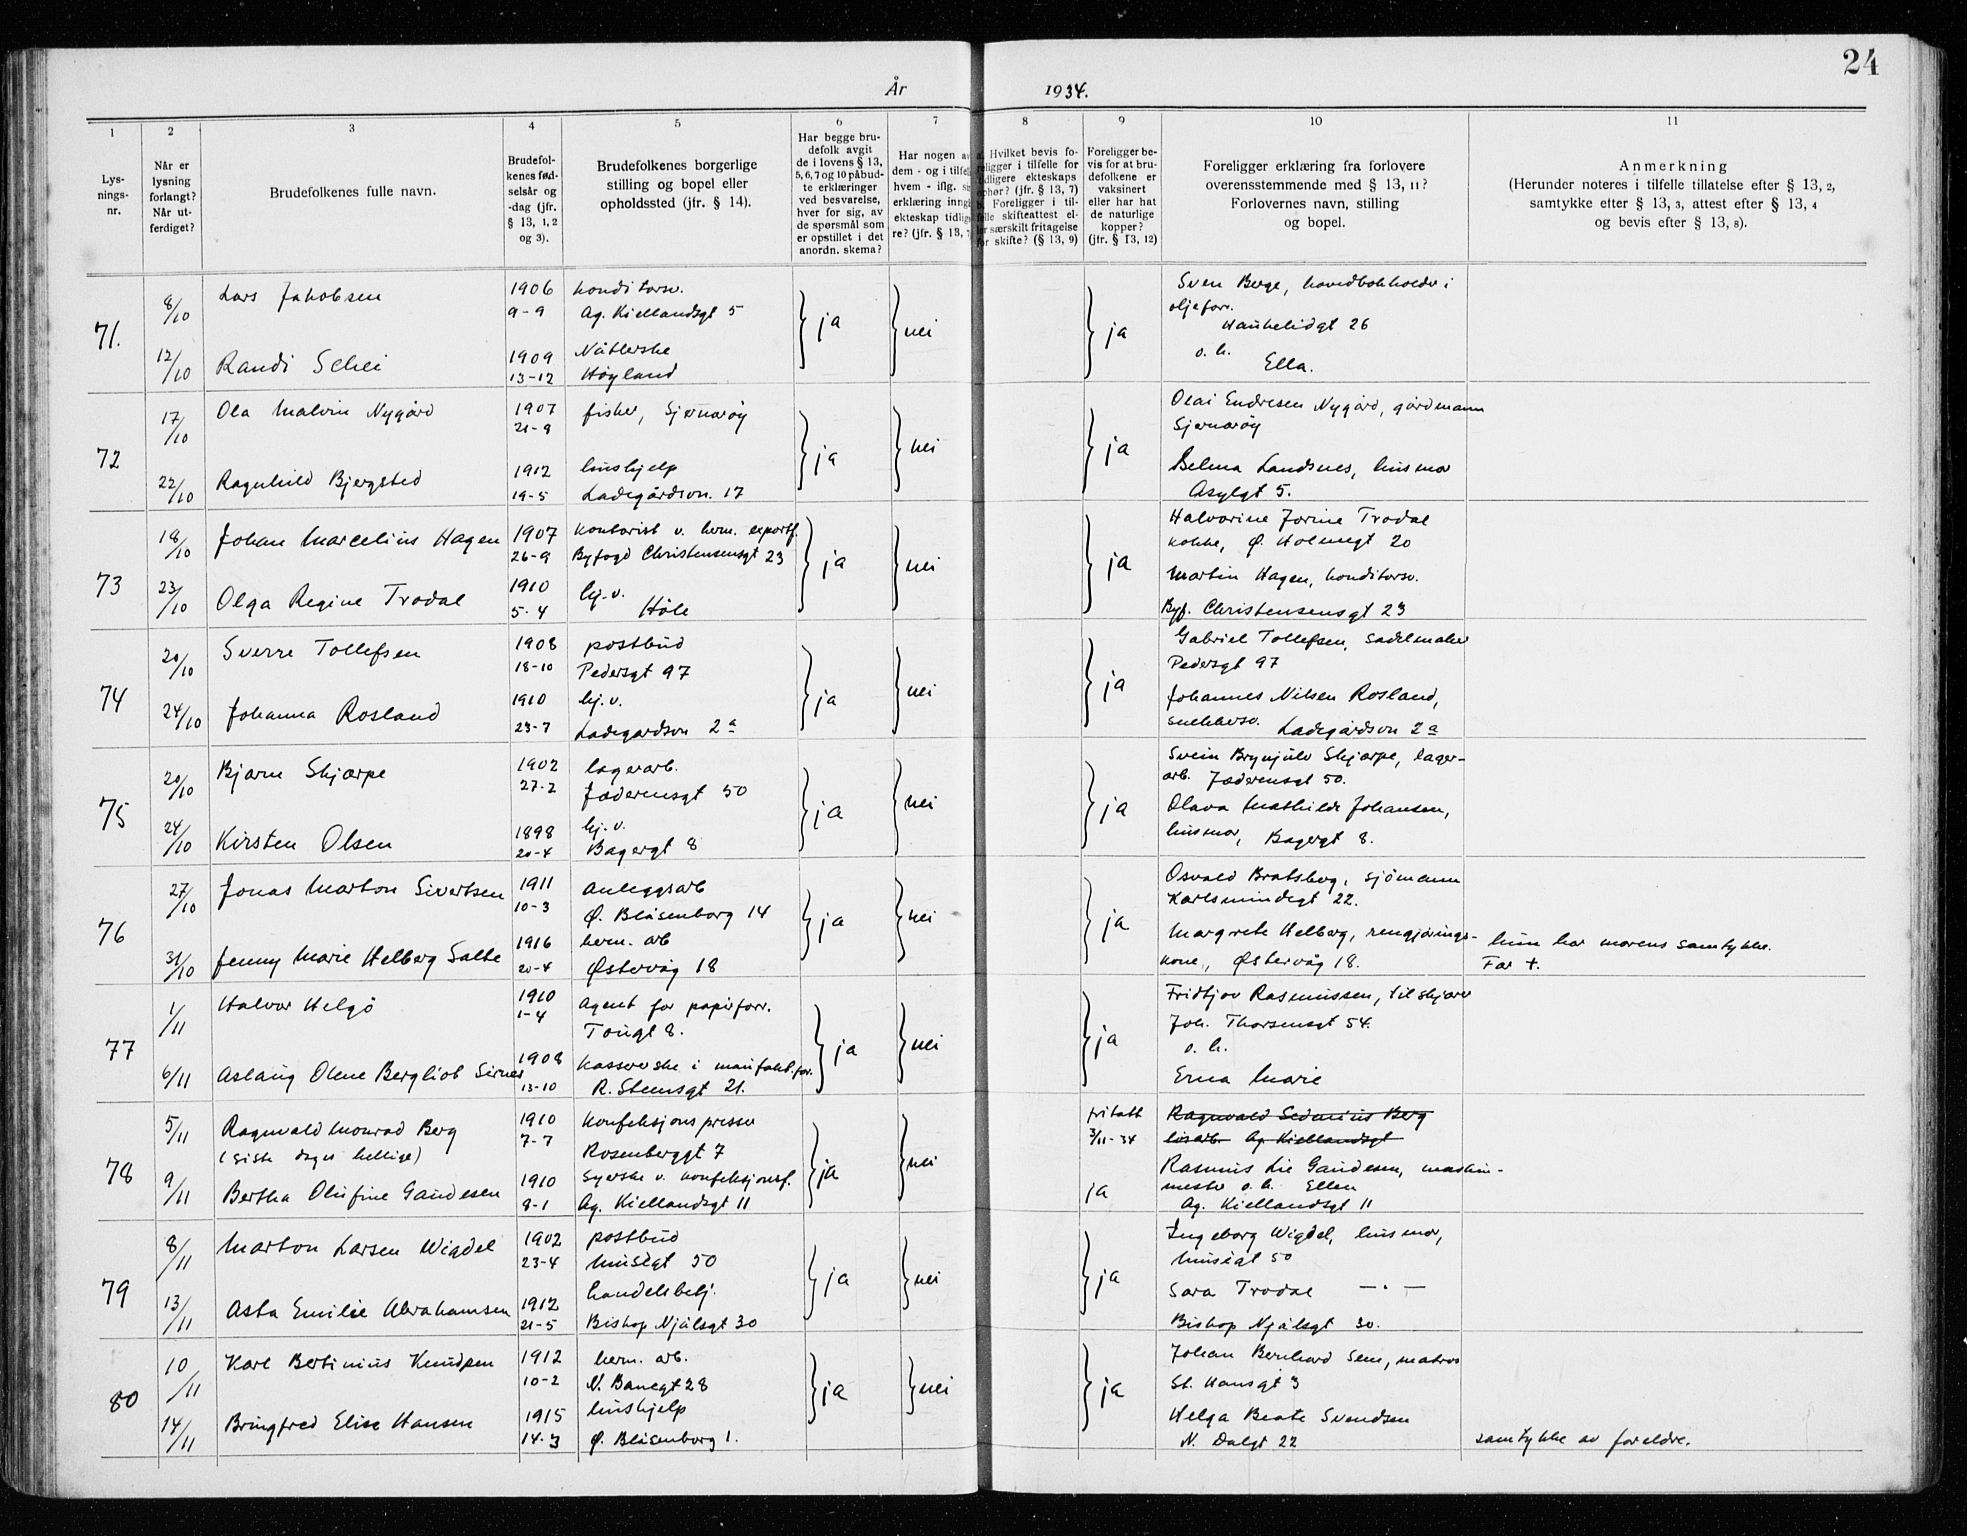 24
År 1934.
1 2 3 4 5 6 7 8 9 10 11
Lys-
nings-
nr.
Når er
lysning
forlangt?
Når ut-
ferdiget?
Brudefolkenes fulle navn.
Brudefol-
kenes fød-
selsår og
-dag (jfr.
§ 13, 1, 2
og 3).
Brudefolkenes borgerlige
stilling og bopel eller
opholdssted (jfr. § 14).
Har begge bru-
defolk avgit
de i lovens § 13,
5, 6, 7 og 10 påbud-
te erklæringer
ved besvarelse,
hver for sig, av
de spørsmål som
er opstillet i det
anordn. skema?
Har nogen av
dem - og i tilfel
hvem - iflg. s
erklæring inng
ekteskap tidlig
re? (jfr. § 13,
Hvilket bevis fo-
religger i tilfelle for
tidligere ekteskaps
ophør? (jfr. § 13, 7)
Foreligger i til-
felle skifteattest el-
ler særskilt fritagelse
for skifte? (§ 13, 9)
Foreligger be-
vis for at bru-
defolkene er
vaksinert
eller har hat
de naturlige
kopper?
(jfr. § 13, 12)
Foreligger erklæring fra forlovere
overensstemmende med § 13, 11?
Forlovernes navn, stilling
og bopel.
Anmerkning
(Herunder noteres i tilfelle tillatelse efter § 13, 2,
samtykke etter § 13, 3, attest efter § 13, 4
og bevis efter § 13, 8).
71.
8/10 Lars Jakobsen 1906 konditorsv.
9-9 Ag. Kiellandsgt 5
ja nei ja
12/10 Randi Schei 1909 Nåtlerske
13-12 Høyland
Sven Berge, hovedbokholder i
oljeforr.
Haukeligt 26
o. h.
Ella.
72
17/10 Ola Malvin Nygård 1907 fisker, Sjernarøy
21-9
ja nei ja
22/10 Ragnhild Bjergsted 1912 hushjelp
19-5 Ladegårdsvn. 17
Olai Endresen Nygård, gårdmann
Sjernarøy
Selma Landsnes, husmor
Asylgt 5.
73
18/10 Johan Marcelius Hagen 1907 kontorist v. herm. exportf.
26-9 Byfogd Christensensgt 23
ja nei ja
23/10 Olga Regine Trodal 1910 hj.v.
5-4 Høle
Halvorine Jorine Trodal
kokke, Ø. Holmegt 20
Martin Hagen, konditorsv.
Byf. Christensensgt 23
74
20/10 Sverre Tollefsen 1908 postbud
18-10 Pedersgt 97
ja nei ja
24/10 Johanna Rosland 1910 hj.v.
23-7 Ladegårdsvn 2a
Gabriel Tollefsen, sadelmaker
Pedersgt 97
Johannes Nilsen Rosland,
snekkersv. Ladegårdsvn 2a
75
20/10 Bjarne Skjærpe 1902 lagerarb.
27-2 Jæderensgt 50
ja nei ja
24/10 Kirsten Olsen 1898 hj.v.
20-4 Bagergt 8
Svein Brynjulv Skjærpe, lager-
arb. Jæderensgt 50.
Olava Mathilde Johansen,
husmor, Bagergt 8.
76
27/10 Jonas Marton Sivertsen 1911 anleggsarb
10-3 Ø. Blåsenborg 14
ja nei ja
31/10 Jenny Marie Helberg Salte 1916 herm. arb
20-4 Østervåg 18
Osvald Bratsberg, sjömann
Karlsmindegt 22.
Margrete Helberg, rengjørings-
kone, Østervåg 18.
hun har morens samtykke.
Far +.
77
1/11 Halvor Helgö 1910 agent for papirforr.
1-4 Tougt 8.
ja nei ja
6/11 Aslaug Olene Bergliot Sirnes 1908 kassererske i manufakt.for.
13-10 R. Steensgt 21.
Fridtjov Rasmussen, tilskjærer
Joh. Thorsensgt 54.
o. h.
Erna Marie
78
5/11 Ragnvald Monrad Berg 1910 Konfeksjonspresser
(siste dages hellige) 7-7 Rosenberggt 7
ja nei
fritatt
3/11-34
ja
9/11 Bertha Olufine Gaudesen 1910 Syerske v. konfeksjonsf.
9-1 Ag. Kiellandsgt 11
Ragnvald Sednius Berg
løsarb. Ag. Kiellandsgt
Rasmus Lie Gaudesen, maskin-
mester o.h. Ellen
Ag. Kiellandsgt 11
79
8/11 Marton Larsen Wigdel 1902 postbud
23-4 Muségt 50
ja nei ja
13/11 Asta Emilie Abrahamsen 1912 handelsbetj.
21-5 Biskop Njålsgt 30
Ingeborg Wigdel, husmor,
Muségt 50
Sara Trodal — · —
Biskop Njålsgt 30.
80
10/11 Karl Bertinius Knudsen 1912 herm. arb.
10-2 N. Banegt 28
ja nei ja
14/11 Bringfred Elise Hansen 1915 hushjelp
14-3 Ø. Blåsenborg 1.
Johan Bernhard Sem, matros
St. Hansgt 3
Helga Beate Svendsen
N. Dalgt 22
samtykke av foreldre.